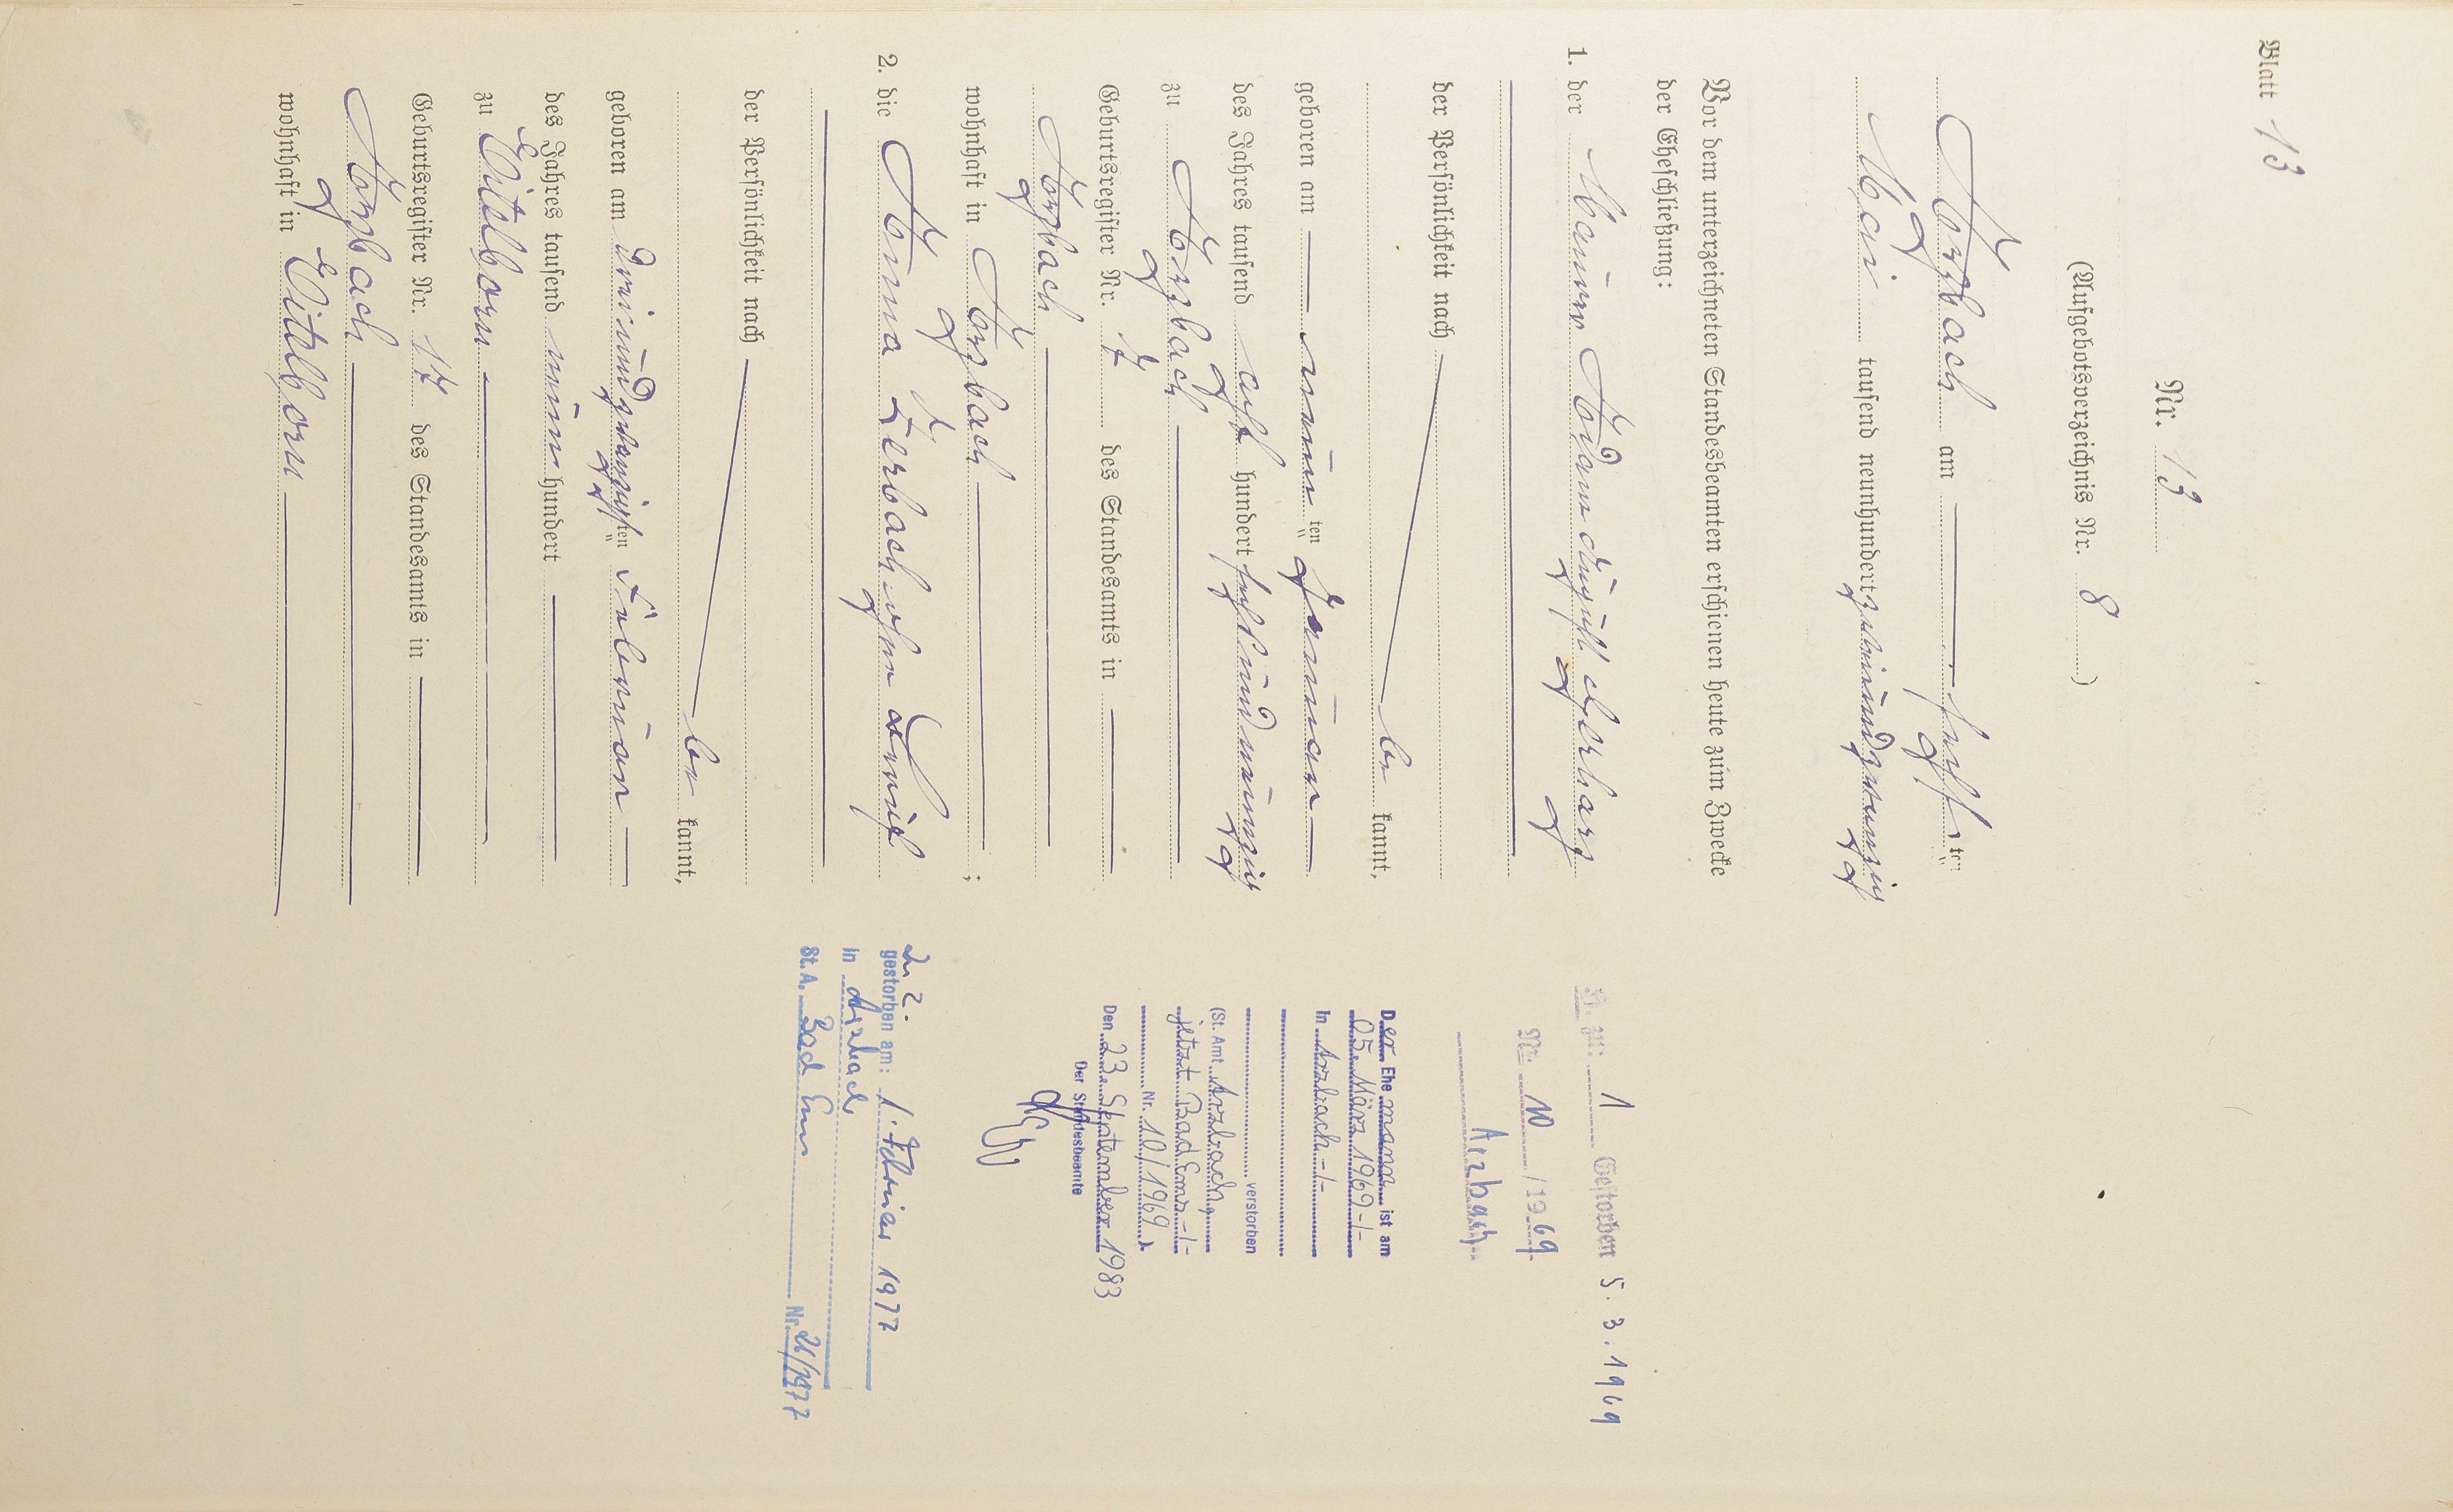 Blatt 13
Nr. 13
(Aufgebotsverzeichnis Nr. 8)
Arzbach am sechsten
Mai tausend neunhundert zweiundzwanzig
Vor dem unterzeichneten Standesbeamten erschienen heute zum Zwecke
der Eheschließung:
1. der Maurer Adam
der Persönlichkeit nach
be kannt,
geboren am neunten Januar
des Jahres tausend acht hundert sechsundneunzig
zu Arzbach
Geburtsregister Nr. 7 des Standesamts in
Arzbach
wohnhaft in Arzbach ;
2. die Anna Zerbach ohne Beruf
der Persönlichkeit nach
be kannt,
geboren am dreiundzwanzigsten Februar
des Jahres tausend neun hundert
zu Eitelborn
Geburtsregister Nr. 17 des Standesamts in
Arzbach
wohnhaft in Eitelborn
H. zu: 1 Gestorben 5.3.1969
Nr. 10 /1969
Arzbach
Der Ehemann ist am
05. März 1969 -/-
in Arzbach -/-
verstorben
(St. Amt Arzbach,
jetzt Bad Ems -/-
Nr. 10/1969 ).
Den 23. September 1983
Der Standesbeamte
Zu 2.
gestorben am: 1. Februar 1977
in Arzbach
St. A. Bad Ems Nr. 21/1977